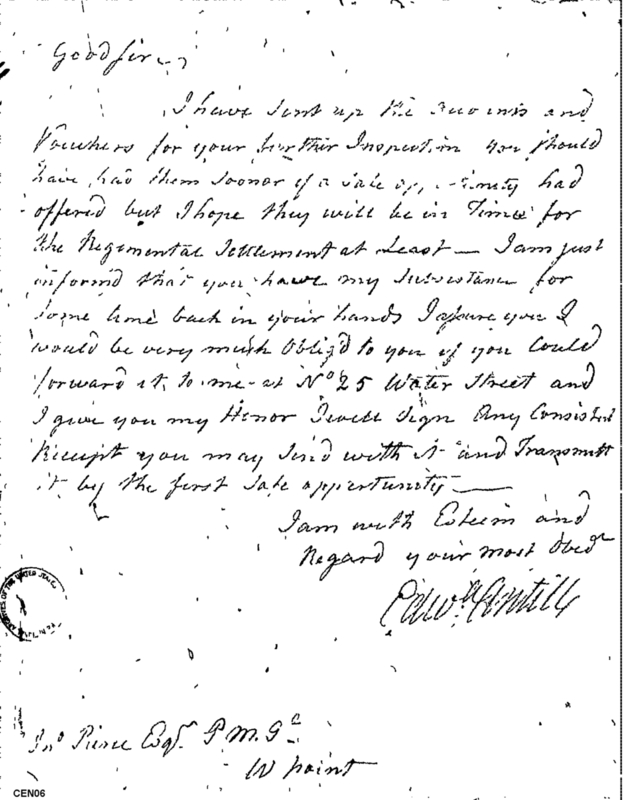 Good Sir
I have sent up the Accounts and
Vouchers for your further Inspection you should
have had them sooner if a safe opportunity had
offered but I hope they will be in Time for
the Regimental Settlement at Least — I am just
informd that you have my Subsistance for
some time back in your hands I assure you I
would be very much Oblig'd to you if you Could
forward it to me at No 25 Water Street and
I give you my Honor I will Sign Any Consistent
Receipt you may Send with it and Transmitt
it by the first Safe opportunity —
I am with Esteem and
Regard your most Obedt
Edwd Antill
Jno Pierce Esqr P. M. Gl
W point
CEN06